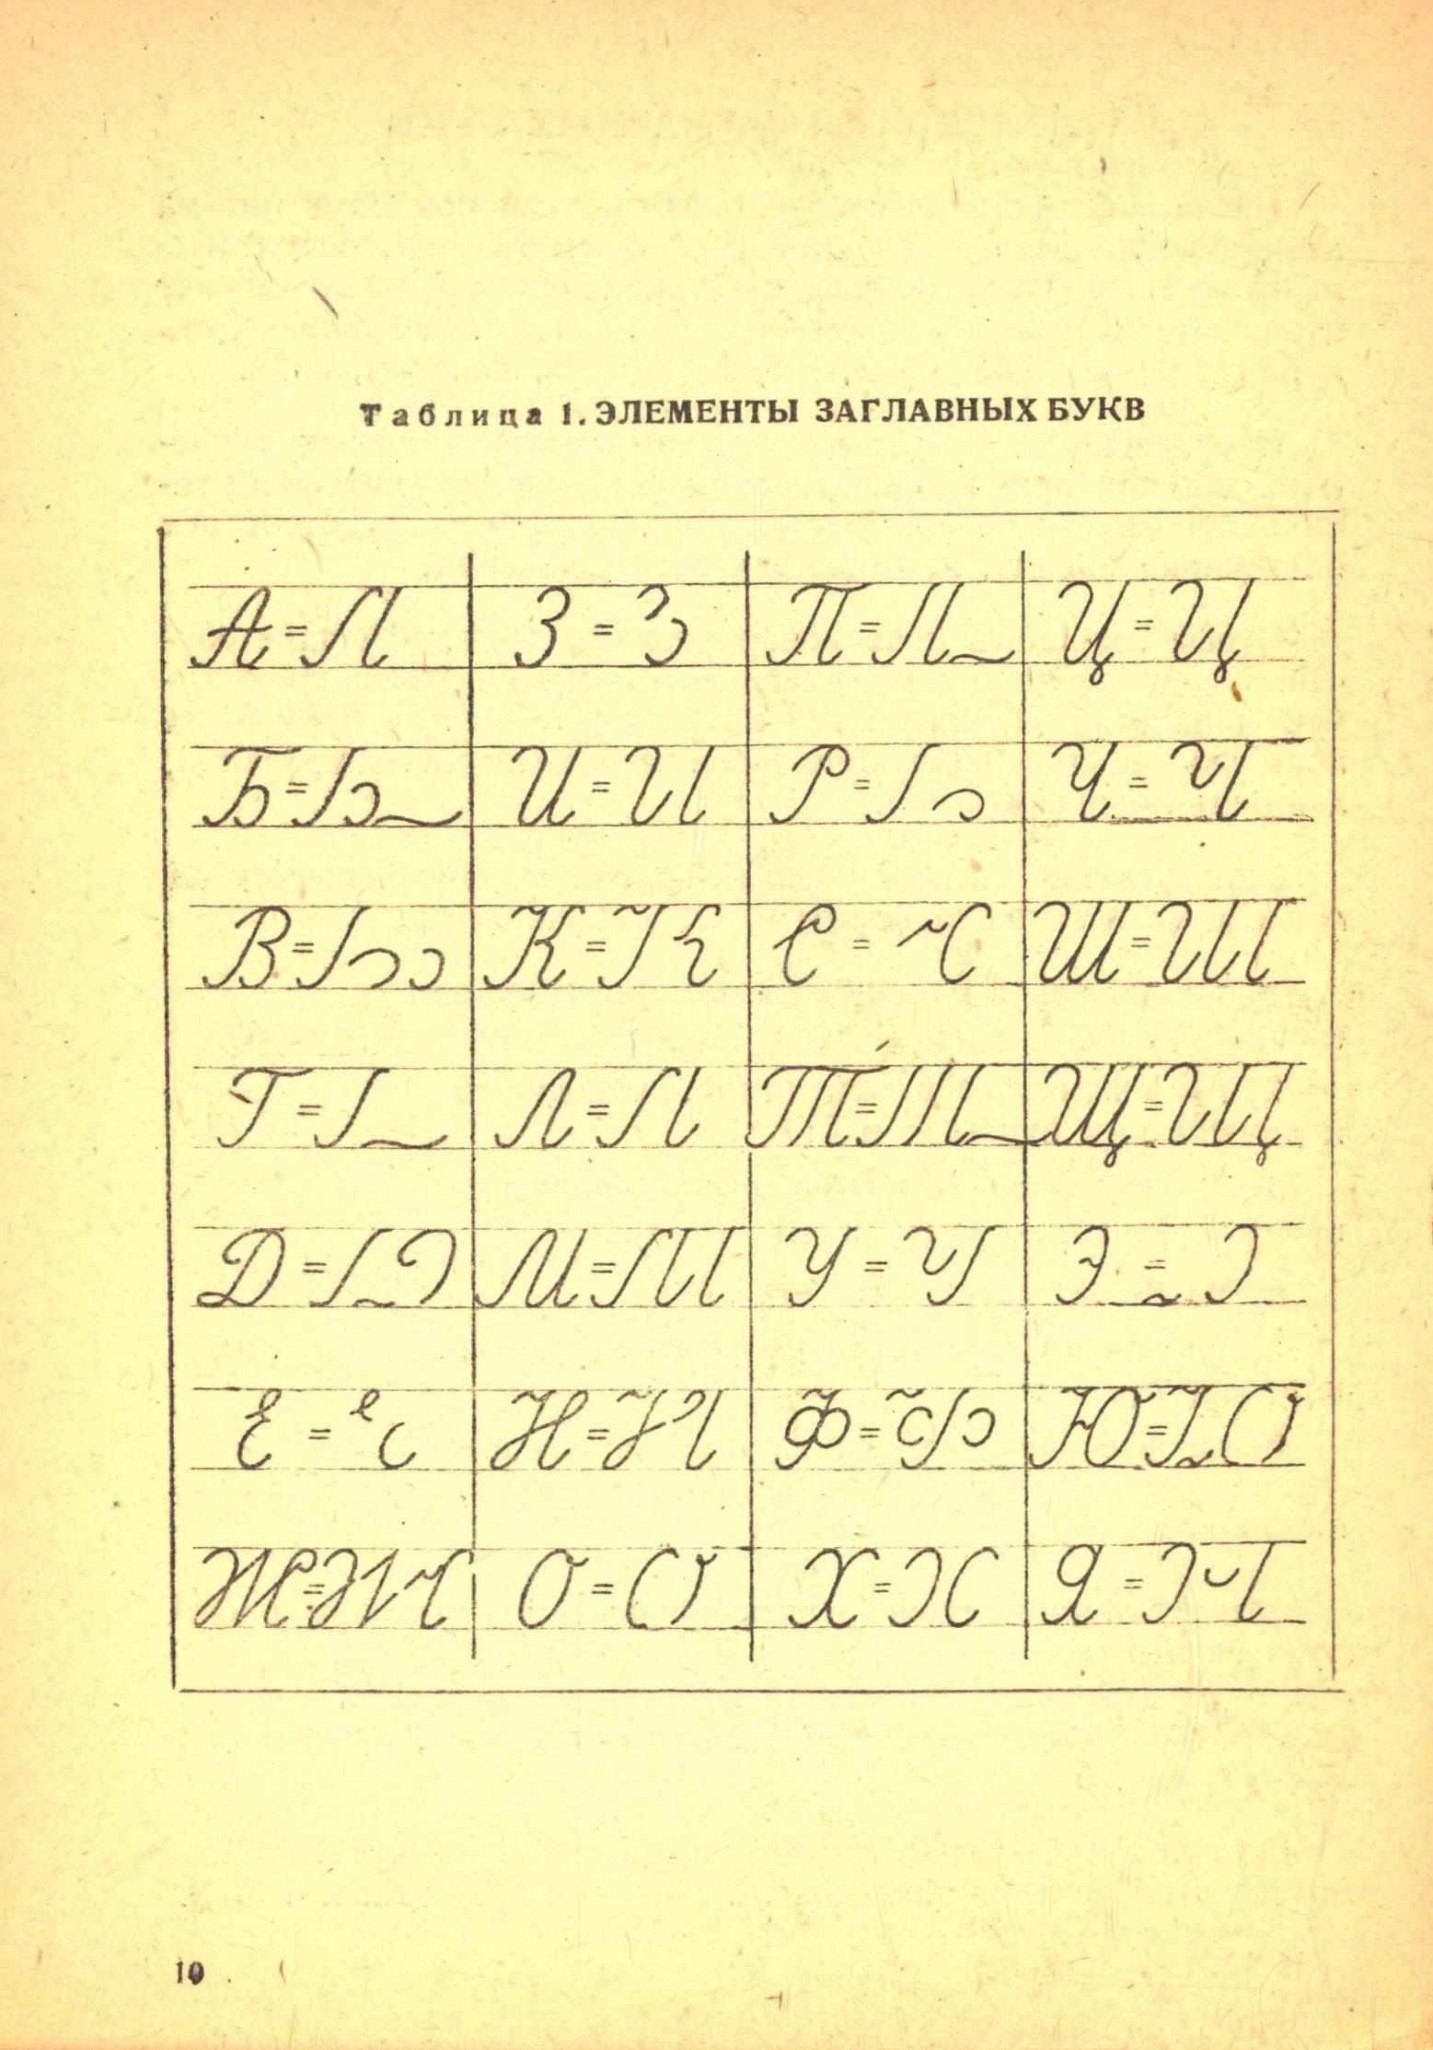 Таблица 1. ЭЛЕМЕНТЫ ЗАГЛАВНЫХ БУКВ
А = З = П = Ц =
Б = И = Р = Ч =
В = К = С = Ш =
Г = Л = Т = Щ =
Д = М = У = Э =
Е = Н = Ф = Ю =
Ж = О = Х = Я =
10